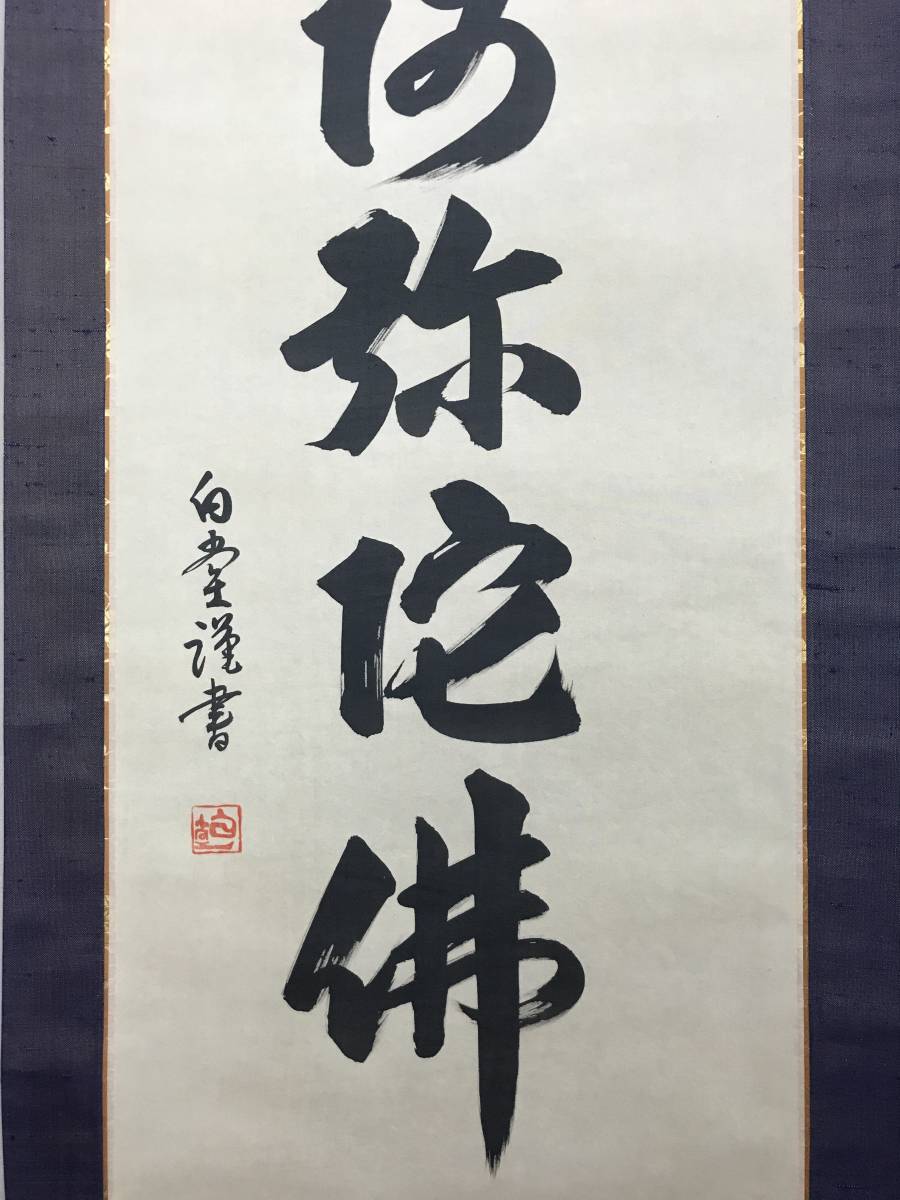 阿弥陀佛
白堂謹書